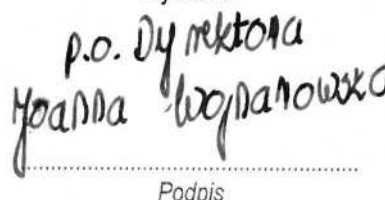 p.o. Dyrektora
Joanna Wojdanowska
Podpis